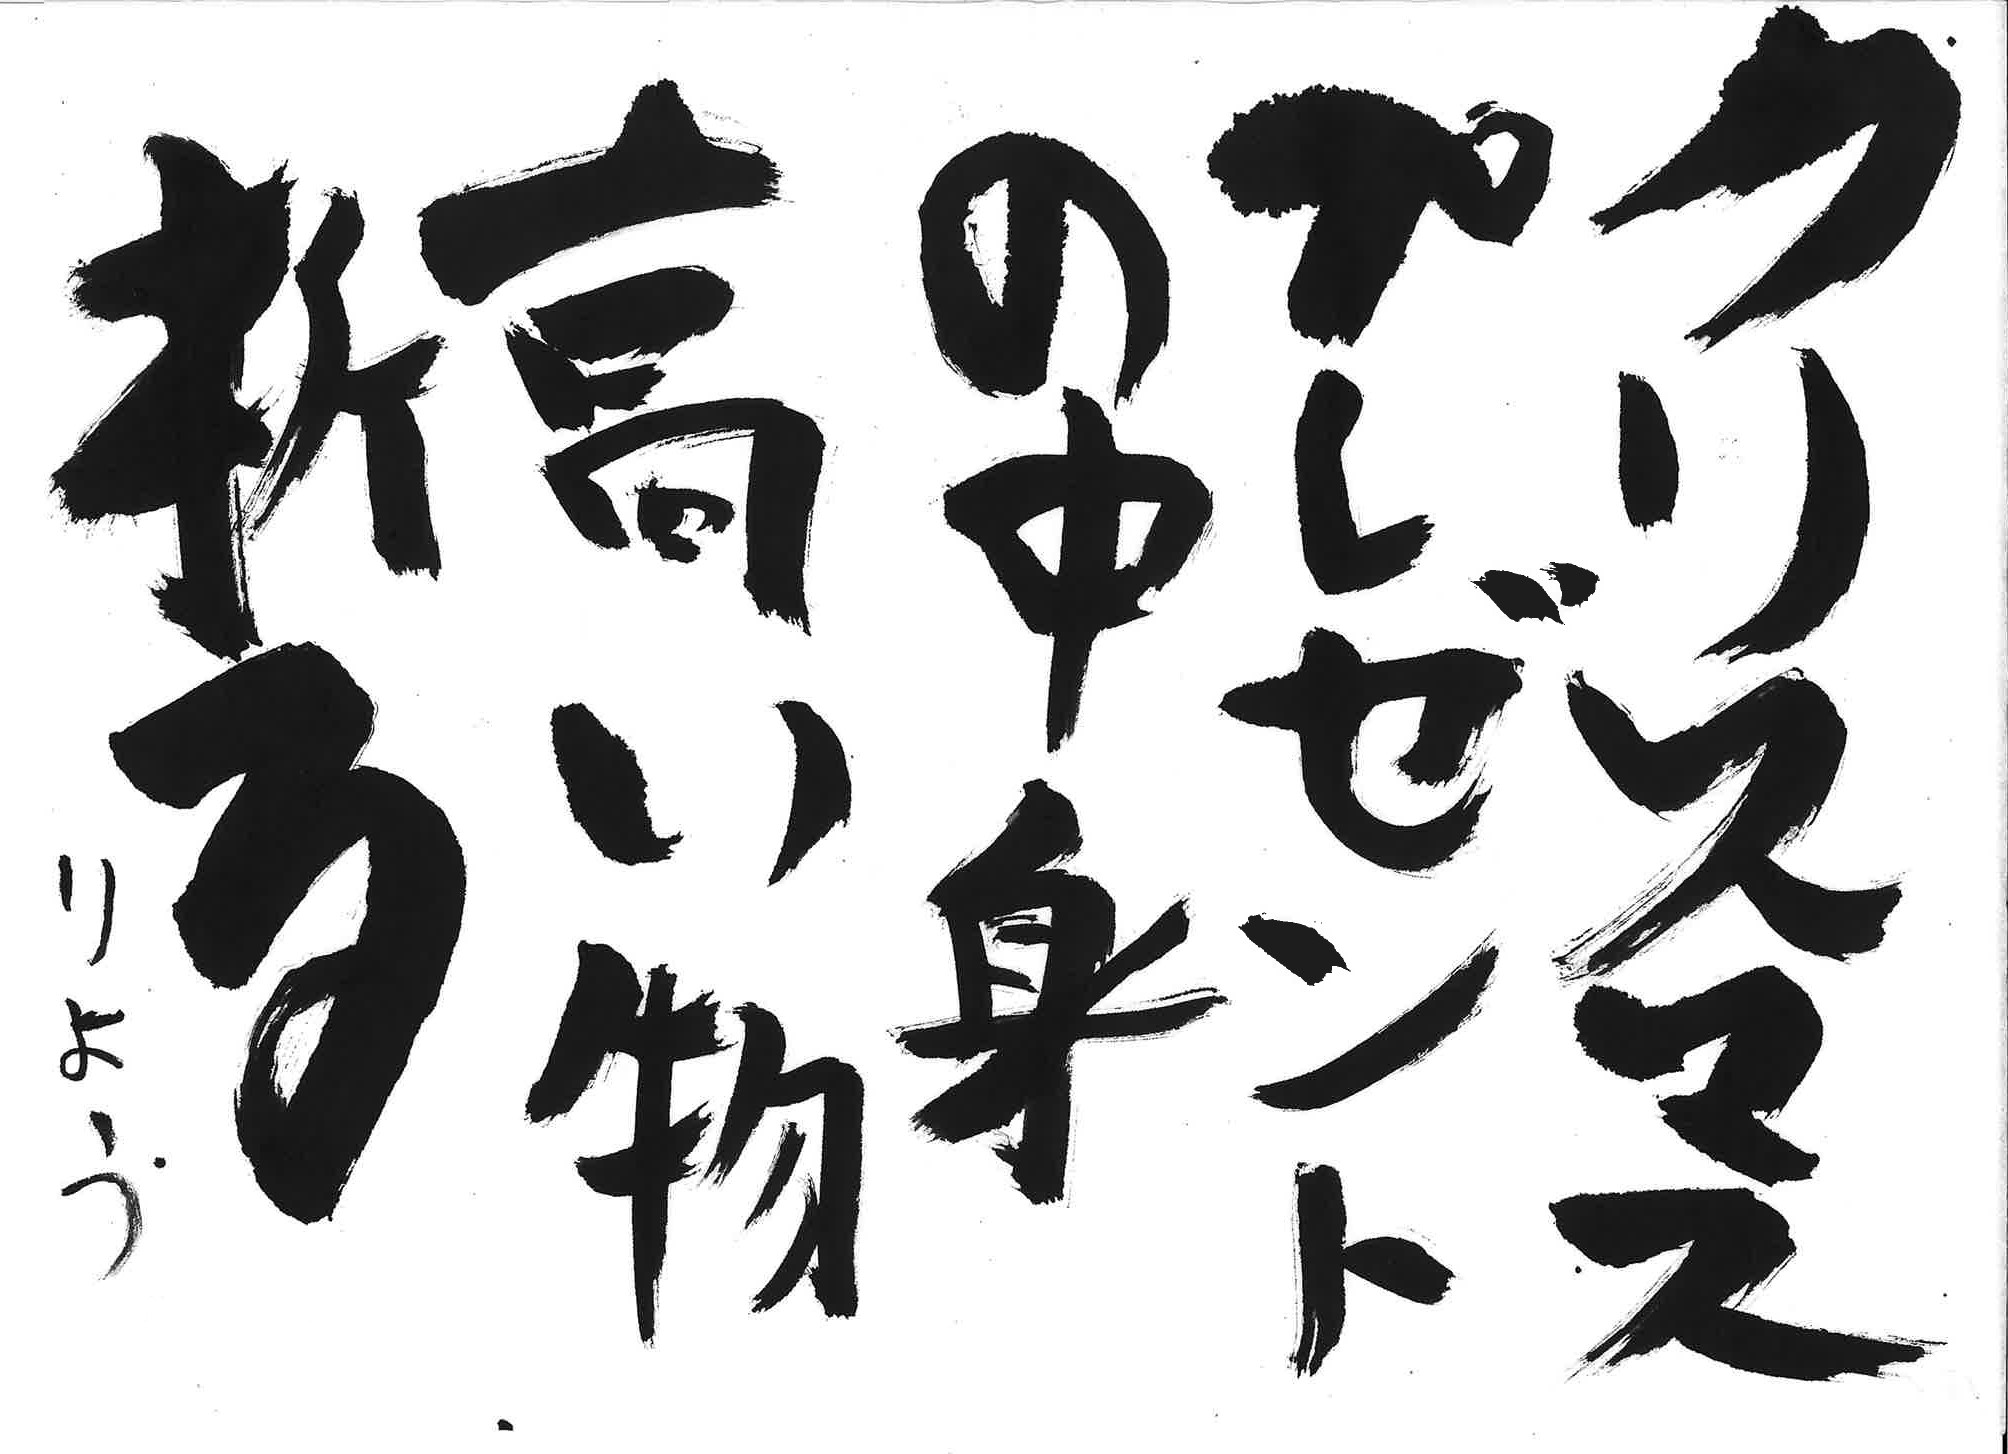 クリスマス
プレゼント
の中身
高い物
祈る
りょう